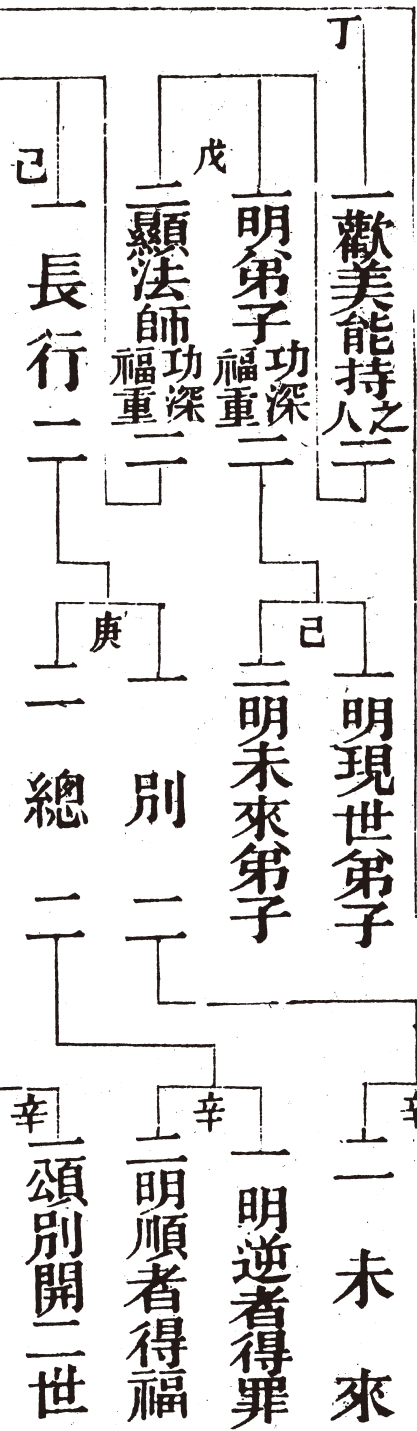 丁
一歎美能持之人二
戊
一明弟子功深福重二
二顯法師功深福重二
己
一長行二
己
一明現世弟子
二明未來弟子
庚
一別二
二總二
辛
二未來
辛
一明逆者得罪
二明順者得福
辛
一頌別開二世